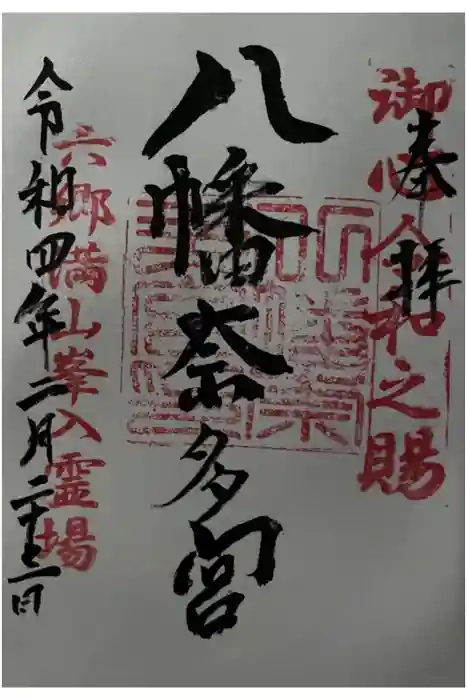 奉拝
御心令和之賜
八幡奈多宮
六郷満山峯入霊場
令和四年二月二十三日